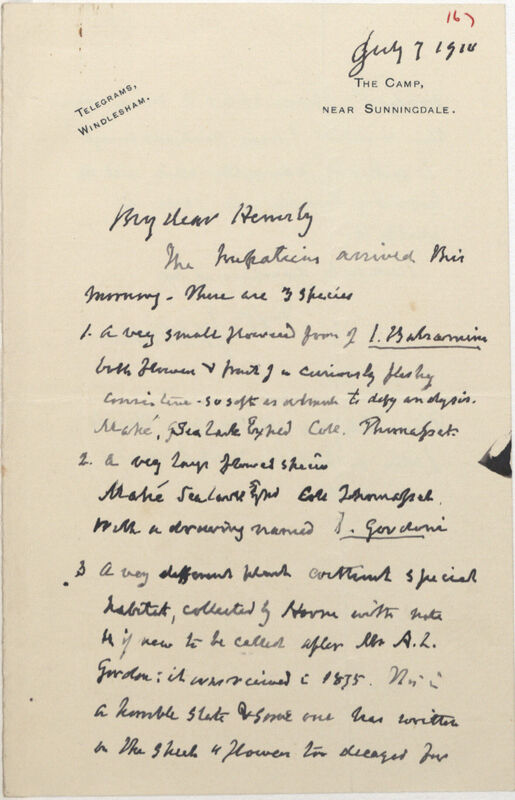 167
July 7 1910
TELEGRAMS,
WINDLESHAM.
THE CAMP,
NEAR SUNNINGDALE.
My dear Hemsley
The Impatiens arrived this
morning - There are 3 species
1. A very small flowered form of I. Balsamina
both flower & fruit of a curiously fleshy
consistence - so soft as almost to defy analysis.
Mahé, Sealark Exped Coll. Thomasset
2. A very large flowered species
Mahé Sealark Exped Coll Thomasset
With a drawing named I. Gordoni
3 A very different plant without special
habitat, collected by Horne with note
"if new to be called after Mr A. L.
Gordon: it was received in 1875. This is
a horrible state & some one has written
on the sheet "flowers too decayed for